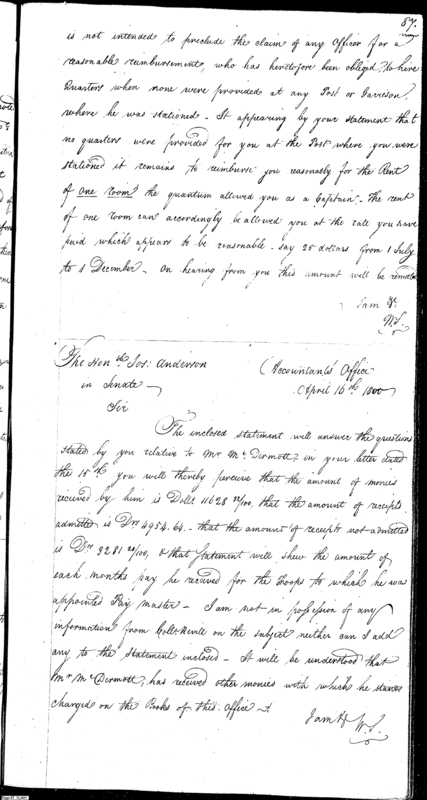 87.
is not intended to preclude the claim of any Officer for a
reasonable reimbursement, who has heretofore been obliged to hire
Quarters when none were provided at any Post or Garrison
where he was stationed - It appearing by your statement that
no quarters were provided for you at the Post where you were
stationed it remains to reimburse you reasonably for the Rent
of one room the quantum allowed you as a Captain - The rent
of one room can accordingly be allowed you at the rate you have
paid which appears to be reasonable - say 25 dollars from 1 July
to 1 December - On hearing from you this amount will be remitted
I am &c
W.S.
The Honble Jos: Anderson
in Senate
Accountants' Office
April 16th 1800
Sir
The inclosed statement will answer the questions
stated by you relative to Mr McDermott, in your letter dated
the 15th you will thereby perceive that the amount of monies
received by him is Dolls 11628 /100, that the amount of receipts
admitted is Drs 4954.64 - that the amount of receipts not admitted
is Drs 3281 /100, & that Statement will shew the amount of
each months pay he received for the Troops to which he was
appointed Pay master - I am not in possession of any
information from Coll on the subject neither can I add
any to the statement inclosed - It will be understood that
Mr McDermott, has received other monies with which he stands
charged on the Books of this Office -
I am &
W.S.